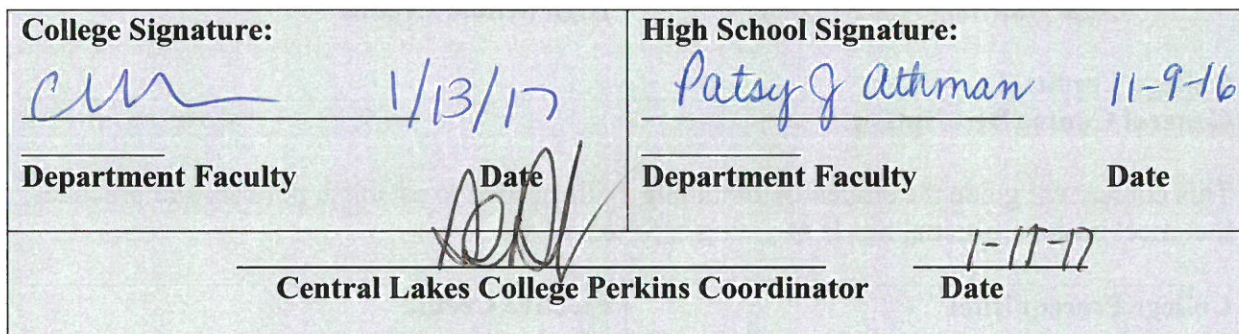 College Signature:
1/13/17
Department Faculty Date
High School Signature:
Patsy J Athman 11-9-16
Department Faculty Date
1-17-17
Central Lakes College Perkins Coordinator Date